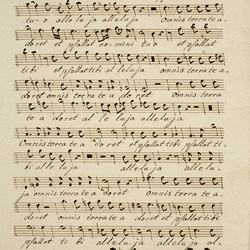 tu-o alleluja alleluja Omnis terra te a,
doret et psallat no-mini tuo et psallat
tibi et psallat tibi alleluja omnis terra te a,
doret omnis terra te a do ret omnis terra
te a doret al le luja alleluja
Omnis terra te a doret et psallat tibi psallat ti
bi alle luja alleluja allelu,
ja omnis terra te a doret omnis terra te a,
doret omnis terra te a doret et psallat
psallat ti bi allelu ja alleluja al,